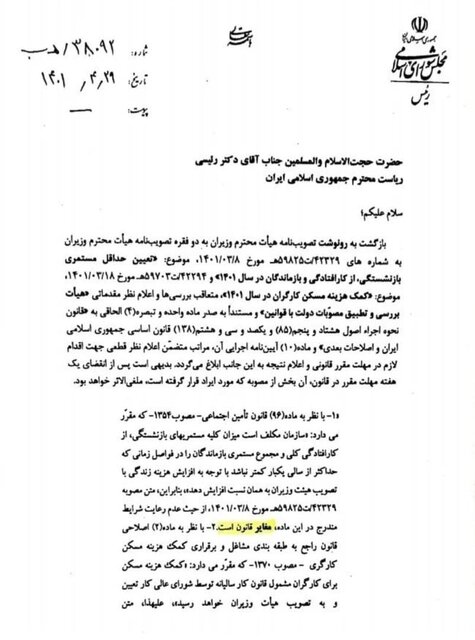 باسمه تعالی
جمهوری اسلامی ایران
مجلس شورای اسلامی
رئیس
شماره: ۳۸۰۹۲/هـ ب
تاریخ: ۱۴۰۱/۴/۲۹
پیوست: —
حضرت حجت‌الاسلام والمسلمین جناب آقای دکتر رئیسی
ریاست محترم جمهوری اسلامی ایران
سلام علیکم؛
بازگشت به رونوشت تصویب‌نامه هیأت محترم وزیران به دو فقره تصویب‌نامه هیأت محترم وزیران
به شماره های ۴۲۳۲۹/ت۵۹۸۲۵هـ مورخ ۱۴۰۱/۰۳/۸، موضوع: «تعیین حداقل مستمری
بازنشستگی، از کارافتادگی و بازماندگان در سال ۱۴۰۱» و ۴۲۲۹۴/ت۵۹۷۰۳هـ مورخ ۱۴۰۱/۰۳/۱۸،
موضوع: «کمک هزینه مسکن کارگران در سال ۱۴۰۱»، متعاقب بررسی‌ها و اعلام نظر مقدماتی «هیأت
بررسی و تطبیق مصوّبات دولت با قوانین» و مستنداً به صدر ماده واحده و تبصره(۴) الحاقی به «قانون
نحوه اجراء اصول هشتاد و پنجم(۸۵) و یکصد و سی و هشتم(۱۳۸) قانون اساسی جمهوری اسلامی
ایران و اصلاحات بعدی» و ماده(۱۰) آیین‌نامه اجرایی آن، مراتب متضمّن اعلام نظر قطعی جهت اقدام
لازم در مهلت مقرر قانونی و اعلام نتیجه به این جانب ابلاغ می‌گردد. بدیهی است پس از انقضای یک
هفته مهلت مقرر در قانون، آن بخش از مصوبه که مورد ایراد قرار گرفته است، ملغی‌الاثر خواهد بود.
«۱- با نظر به ماده(۹۶) قانون تأمین اجتماعی- مصوب۱۳۵۴- که مقرّر
می دارد: «سازمان مکلف است میزان کلیه مستمریهای بازنشستگی، از
کارافتادگی کلی و مجموع مستمری بازماندگان را در فواصل زمانی که
حداکثر از سالی یکبار کمتر نباشد با توجه به افزایش هزینه زندگی با
تصویب هیئت وزیران به همان نسبت افزایش دهد»، بنابراین، متن مصوبه
۴۲۳۲۹/ت۵۹۸۲۵هـ مورخ ۱۴۰۱/۰۳/۸، از حیث عدم رعایت شرایط
مندرج در این ماده، مغایر قانون است. ۲- با نظر به ماده(۲) اصلاحی
قانون راجع به طبقه بندی مشاغل و برقراری کمک هزینه مسکن
کارگری - مصوب ۱۳۷۰- که مقرر می دارد: «کمک هزینه مسکن
برای کارگران مشمول قانون کار سالیانه توسط شورای عالی کار تعیین
و به تصویب هیأت وزیران خواهد رسید»، علیهذا، متن